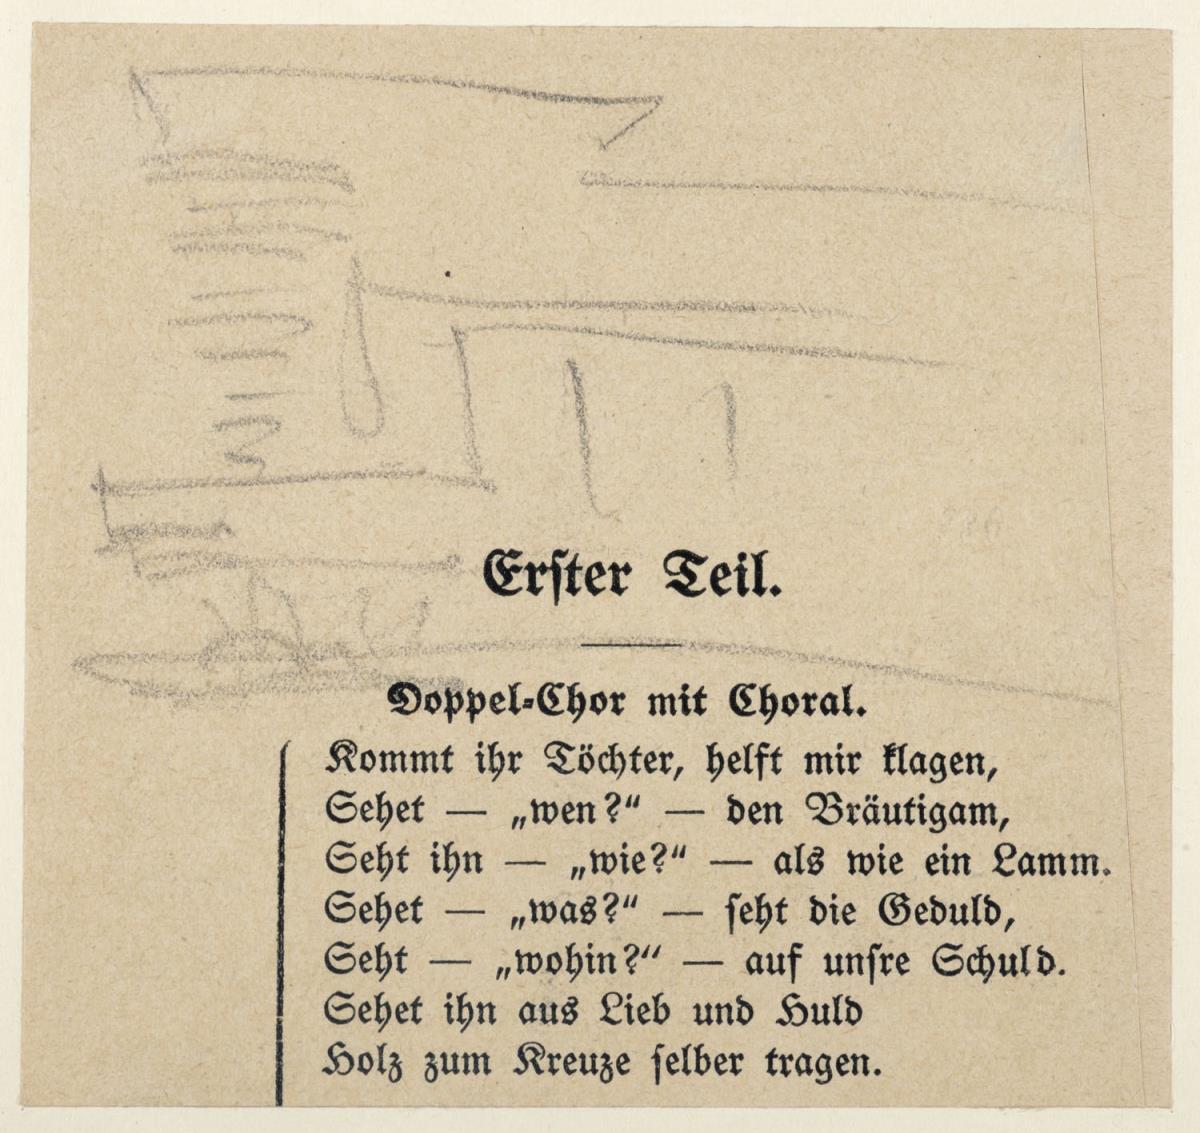 Erster Teil.
Doppel-Chor mit Choral.
Kommt ihr Töchter, helft mir klagen,
Sehet — „wen?“ — den Bräutigam,
Seht ihn — „wie?“ — als wie ein Lamm.
Sehet — „was?“ — seht die Geduld,
Seht — „wohin?“ — auf unsre Schuld.
Sehet ihn aus Lieb und Huld
Holz zum Kreuze selber tragen.